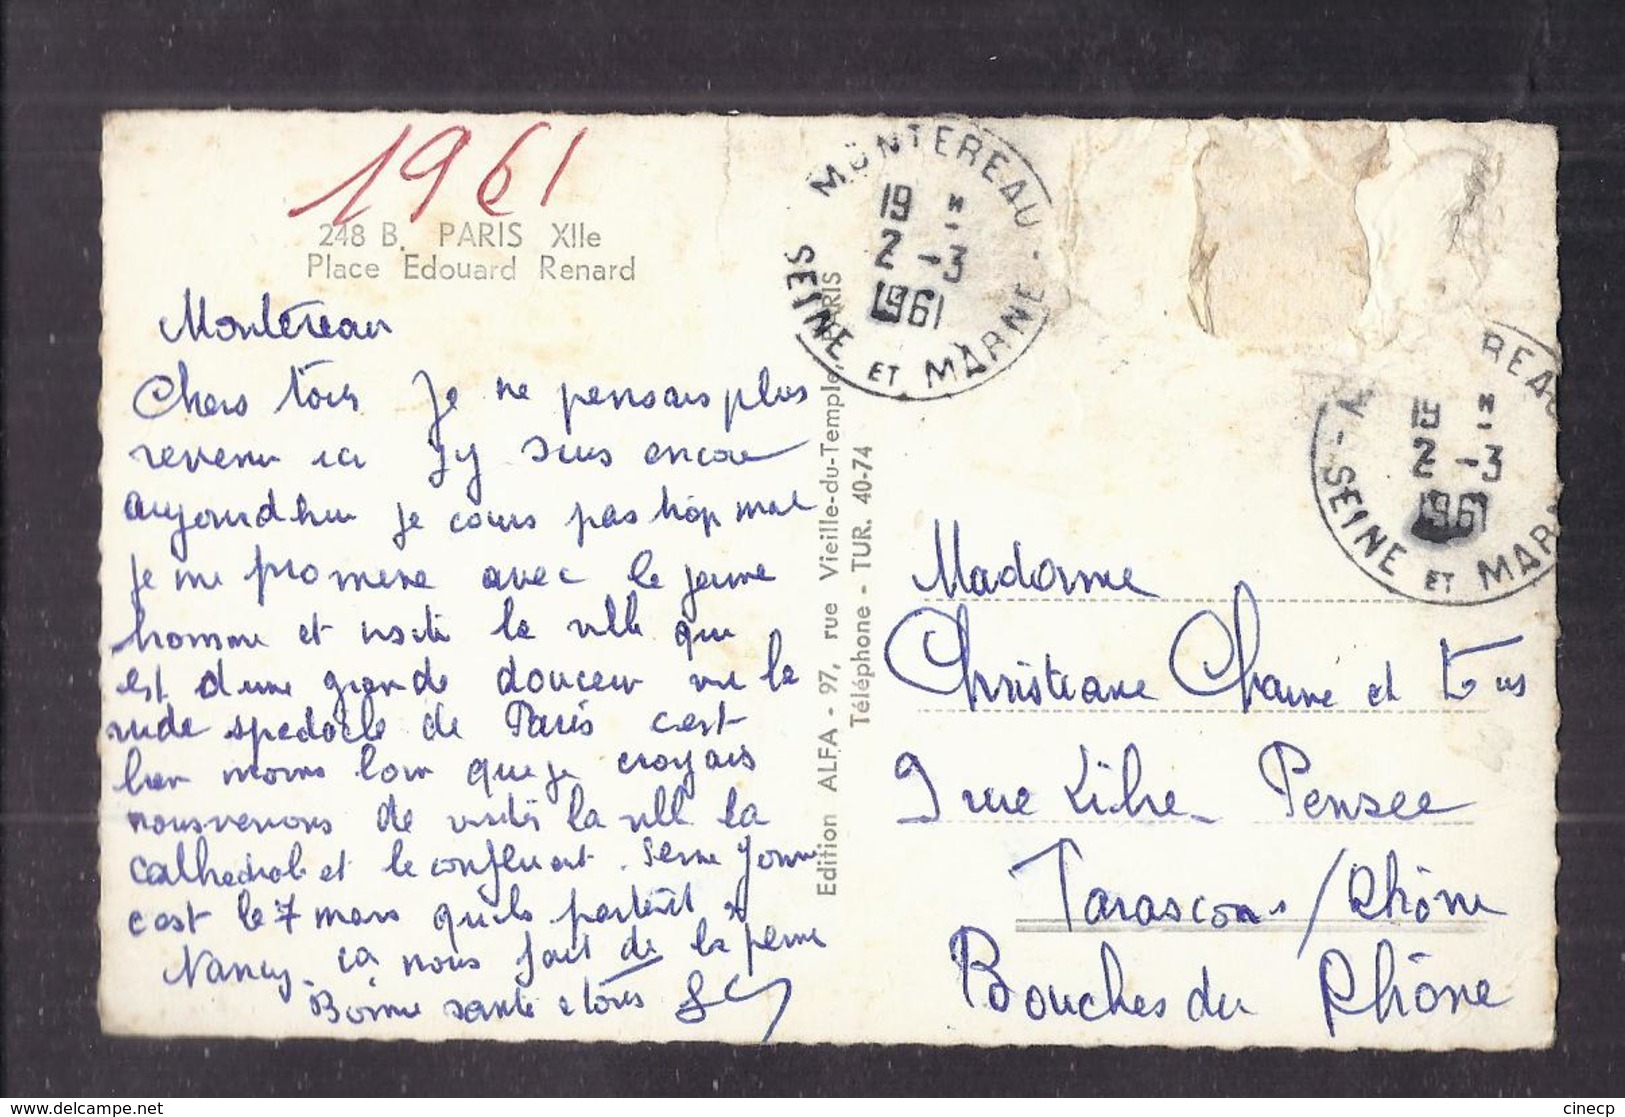 1961
248 B. PARIS XIIe
Place Edouard Renard
Montereau
Chers tous Je ne pensais plus
revenir ici J'y suis encore
aujourd'hui je cours pas trop mal
je me promene avec le jeune
homme et visite la ville qui
est d'une grande douceur vu le
rude spectacle de Paris c'est
bien moins loin que je croyais
nous venons de visiter la ville la
cathedrale et le confluent Seine Yonne
c'est le 7 mars qu'ils partent
Nancy ça nous fait de la peine
Bonne santé a tous
Edition ALFA - 97, rue Vieille-du-Temple, PARIS
Téléphone - TUR. 40-74
MONTEREAU - SEINE ET MARNE
19 H
2 -3
1961
REAU
19 H
2 -3
1961
SEINE ET MAR
Madame
Christiane Chaine et tous
9 rue Libre Pensee
Tarascon s/Rhône
Bouches du Rhône
delcampe.net
cinecp